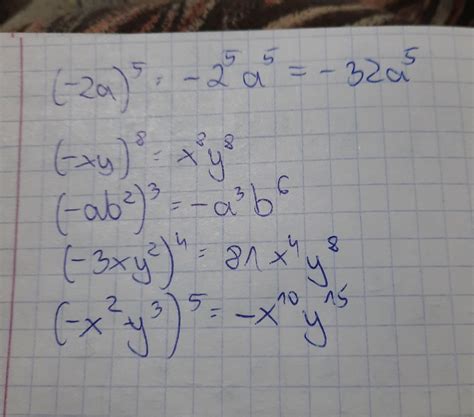 (-2a)⁵ = -2⁵a⁵ = -32a⁵
(-xy)⁸ = x⁸y⁸
(-ab²)³ = -a³b⁶
(-3xy²)⁴ = 81x⁴y⁸
(-x²y³)⁵ = -x¹⁰y¹⁵